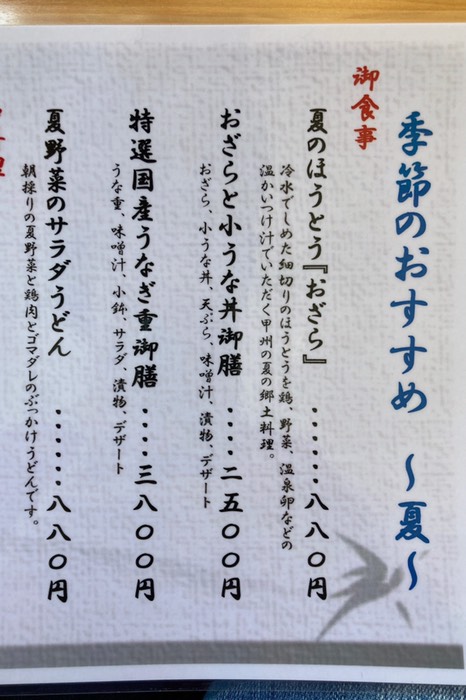 季節のおすすめ ～夏～
御食事
夏のほうとう『おざら』……八八〇円
冷水でしめた細切りのほうとうを鶏、野菜、温泉卵などの
温かいつけ汁でいただく甲州の夏の郷土料理。
おざらと小うな丼御膳‥‥二五〇〇円
おざら、小うな丼、天ぷら、味噌汁、漬物、デザート
特選国産うなぎ重御膳‥‥三八〇〇円
うな重、味噌汁、小鉢、サラダ、漬物、デザート
夏野菜のサラダうどん……八八〇円
朝採りの夏野菜と鶏肉とゴマダレのぶっかけうどんです。